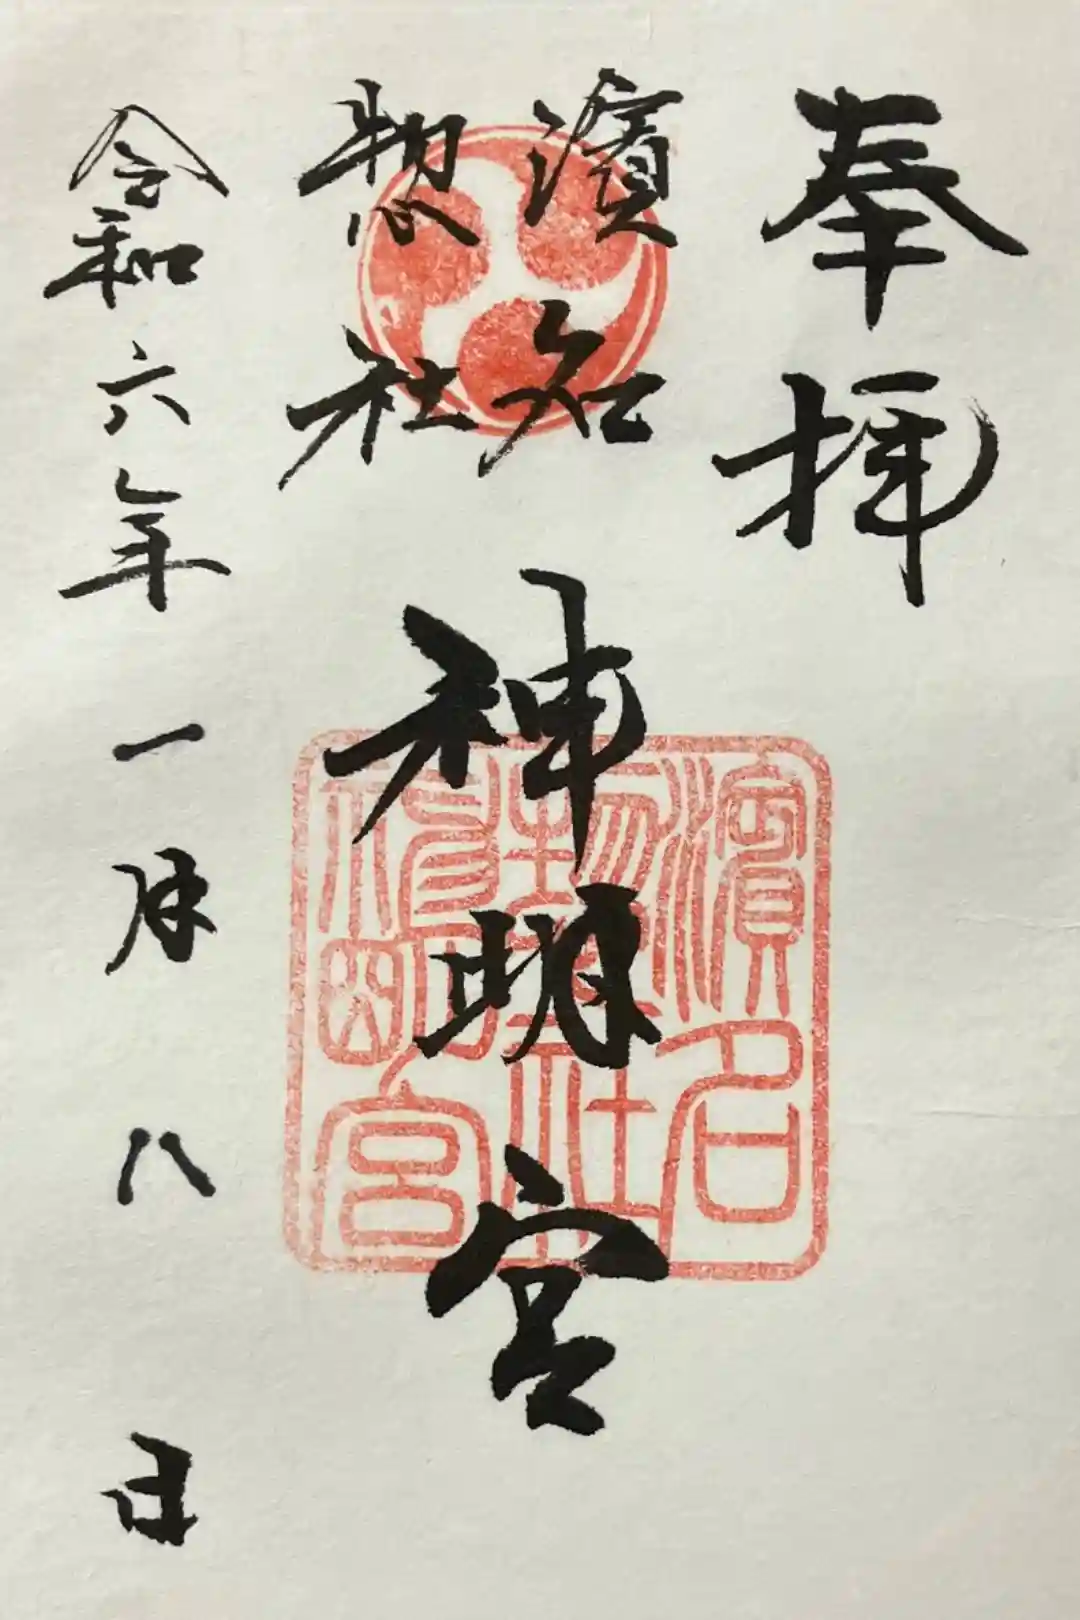 奉拝
濱名
惣社
神明宮
令和六年一月八日
濱名
惣社
神明宮